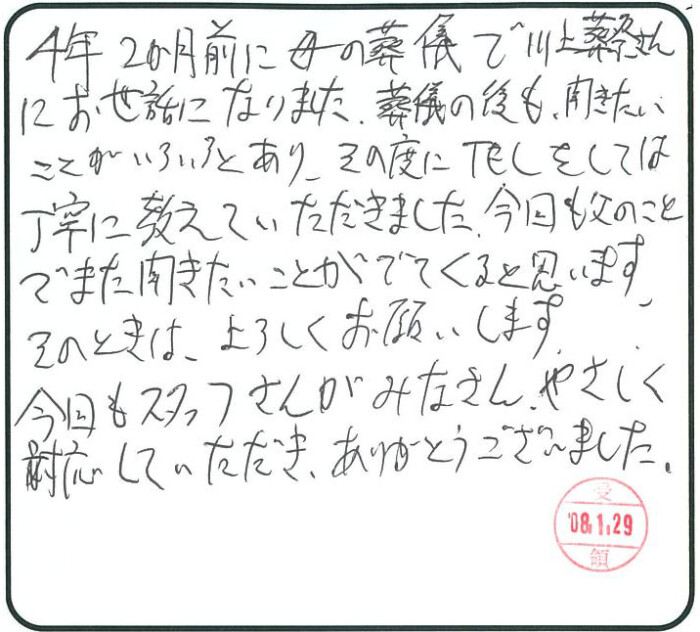 4年2か月前に母の葬儀で川上葬祭さん
にお世話になりました。葬儀の後も、聞きたい
ことがいろいろとあり、その度にTELをしては
丁寧に教えていただきました。今回も父のこと
でまた聞きたいことがでてくると思います。
そのときは、よろしくお願いします。
今回もスタッフさんがみなさん、やさしく
対応していただき、ありがとうございました。
受
'08.1.29
領